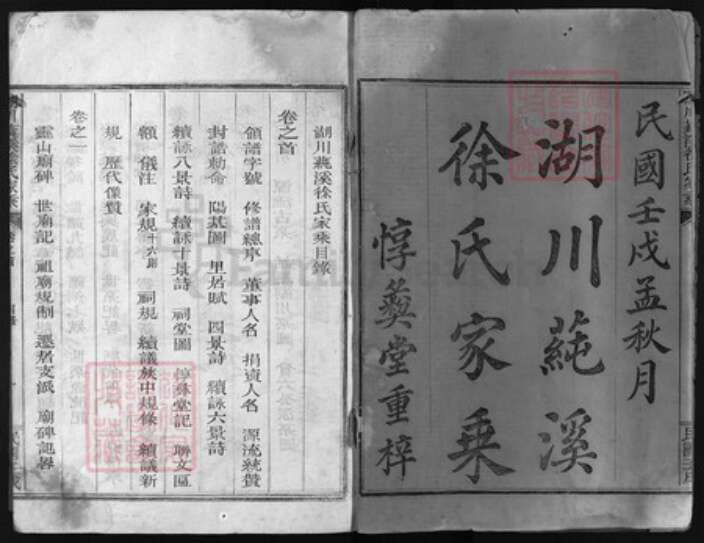 民國壬戌孟秋月
湖川蒓溪
徐氏家乘
惇彝堂重梓
湖川蒓溪徐氏家乘目錄
卷之首
領譜字號 修譜總序 董事人名 捐資人名 源流統贊
封誥勅命 陽基圖 里居賦 四景詩 續詠六景詩
續詠八景詩 續詠十景詩 祠堂圖 惇彝堂記 聯文匾
額 儀注 家規十六歸 祠規 續議族中規條 續議新
規 歷代像贊
卷之一
靈山廟碑 世廟記 祖廟規制 遷居支派 廟碑記畧